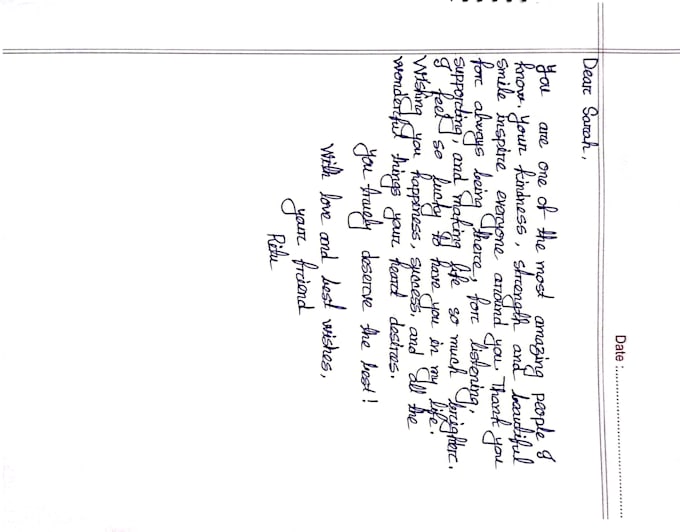 Date :
Dear Sarah,
You are one of the most amazing people I
know. Your kindness, strength and beautiful
smile inspire everyone around you. Thank you
for always being there, for listening,
supporting, and making life so much brighter.
I feel so lucky to have you in my life.
Wishing you happiness, success, and all the
wonderful things your heart desires.
You truely deserve the best!
With love and best wishes,
your friend
Ritu